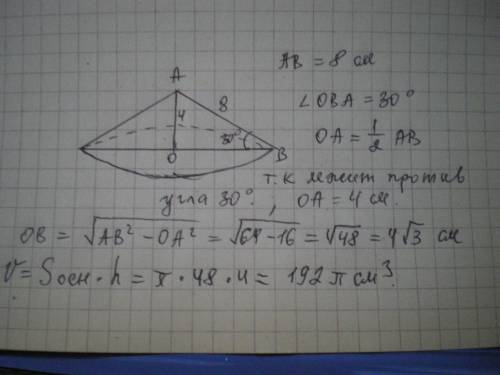 AB = 8 см
A
8
∠OBA = 30°
4
30°
OA = 1/2 AB
O
B
т.к лежит против
угла 30°. , OA = 4 см.
OB = √AB² - OA² = √64-16 = √48 = 4√3 см
V = Sосн · h = π · 48 · 4 = 192 π см³.